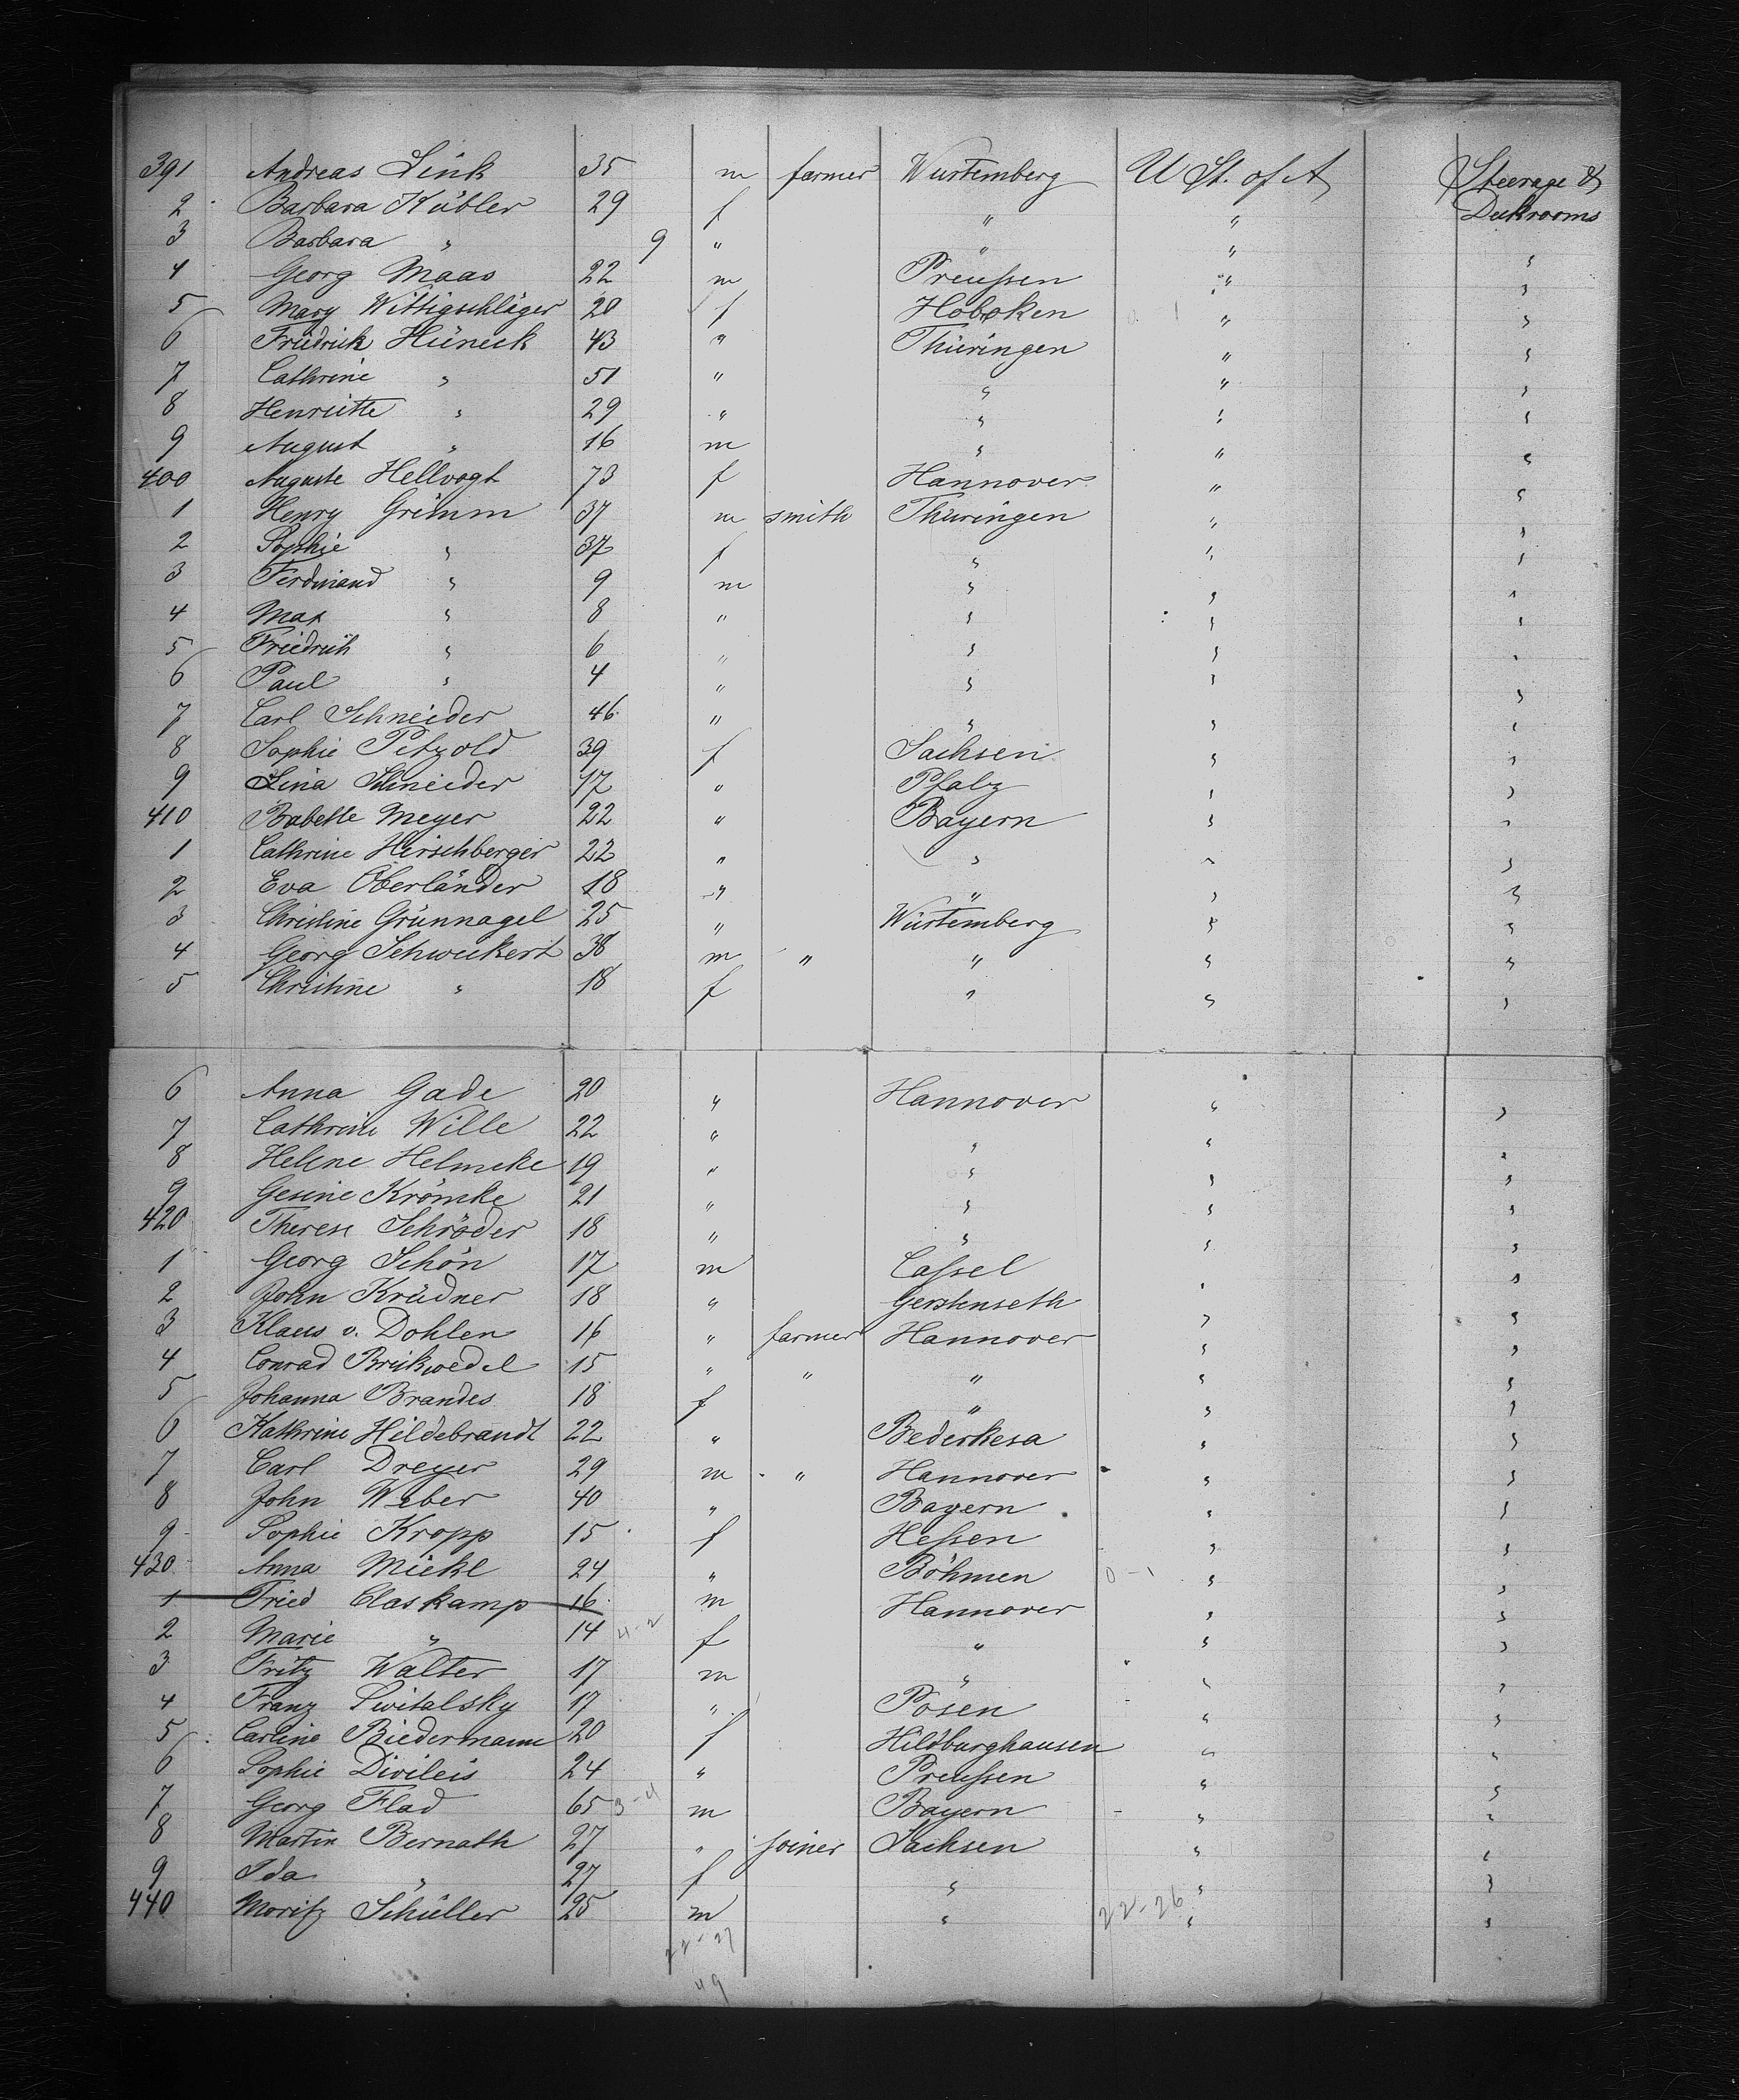 391 Andreas Link 35 m farmer Würtemberg U St. of A Steerage &
2 Barbara Kübler 29 f " " Deckrooms
3 Barbara " 9 " " "
4 Georg Maas 22 m Preußen " "
5 Mary Wittigschläger 20 f Hoboken " "
6 Friedrich Hüneck 43 " Thüringen " "
7 Cathrine " 51 " " " "
8 Henriette " 29 " " " "
9 August " 16 m " " "
400 Auguste Hellvogt 73 f Hannover " "
1 Henry Grimm 37 m smith Thüringen " "
2 Sophie " 37 f " " "
3 Ferdinand " 9 m " " "
4 Max " 8 " " " "
5 Friedrich " 6 " " " "
6 Paul " 4 " " " "
7 Carl Schneider 46 " " " "
8 Sophie Petzold 39 f Sachsen " "
9 Lina Schneider 17 " Pfalz " "
410 Babette Meyer 22 " Bayern " "
1 Cathrine Hirschberger 22 " " " "
2 Eva Oberländer 18 " " " "
3 Christine Grünnagel 25 " Würtemberg " "
4 Georg Schweikert 38 m " " " "
5 Christine " 18 f " " "
6 Anna Gade 20 " Hannover " "
7 Cathrine Wille 22 " " " "
8 Helene Helmcke 19 " " " "
9 Gesine Krömke 21 " " " "
420 Therese Schröder 18 " " " "
1 Georg Schön 17 m Caßel " "
2 John Krüdner 18 " " "
3 Klaus v. Dohlen 16 " farmer Hannover " "
4 Conrad Brickwedel 15 " " " " "
5 Johanna Brandes 18 f " " "
6 Kathrine Hildebrandt 22 " Bederkesa " "
7 Carl Dreyer 29 m " Hannover " "
8 John Weber 40 " Bayern " "
9 Sophie Kropp 15 f Heßen " "
430 Anna Mickl 24 " Böhmen 0-1 " "
1 Fried Claskamp 16 m Hannover " "
2 Marie " 14 4-2 f " " "
3 Fritz Walter 17 m " " "
4 Franz Switalsky 17 " Posen " "
5 Carline Biedermann 20 f Hildburghausen " "
6 Sophie Divileis 24 " Preußen " "
7 Georg Flad 65 3-4 m Bayern " "
8 Martin Bernath 27 " joiner Sachsen " "
9 Ida " 27 f " " "
440 Moritz Schüller 25 m " 22-26 " "
22-27
49